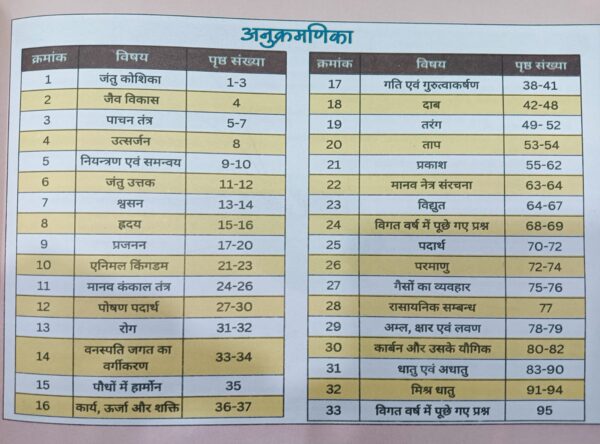 अनुक्रमणिका
क्रमांक विषय पृष्ठ संख्या
1 जंतु कोशिका 1-3
2 जैव विकास 4
3 पाचन तंत्र 5-7
4 उत्सर्जन 8
5 नियन्त्रण एवं समन्वय 9-10
6 जंतु उत्तक 11-12
7 श्वसन 13-14
8 हृदय 15-16
9 प्रजनन 17-20
10 एनिमल किंगडम 21-23
11 मानव कंकाल तंत्र 24-26
12 पोषण पदार्थ 27-30
13 रोग 31-32
14 वनस्पति जगत का
वर्गीकरण 33-34
15 पौधों में हार्मोन 35
16 कार्य, ऊर्जा और शक्ति 36-37
क्रमांक विषय पृष्ठ संख्या
17 गति एवं गुरुत्वाकर्षण 38-41
18 दाब 42-48
19 तरंग 49- 52
20 ताप 53-54
21 प्रकाश 55-62
22 मानव नेत्र संरचना 63-64
23 विद्युत 64-67
24 विगत वर्ष में पूछे गए प्रश्न 68-69
25 पदार्थ 70-72
26 परमाणु 72-74
27 गैसों का व्यवहार 75-76
28 रासायनिक सम्बन्ध 77
29 अम्ल, क्षार एवं लवण 78-79
30 कार्बन और उसके यौगिक 80-82
31 धातु एवं अधातु 83-90
32 मिश्र धातु 91-94
33 विगत वर्ष में पूछे गए प्रश्न 95